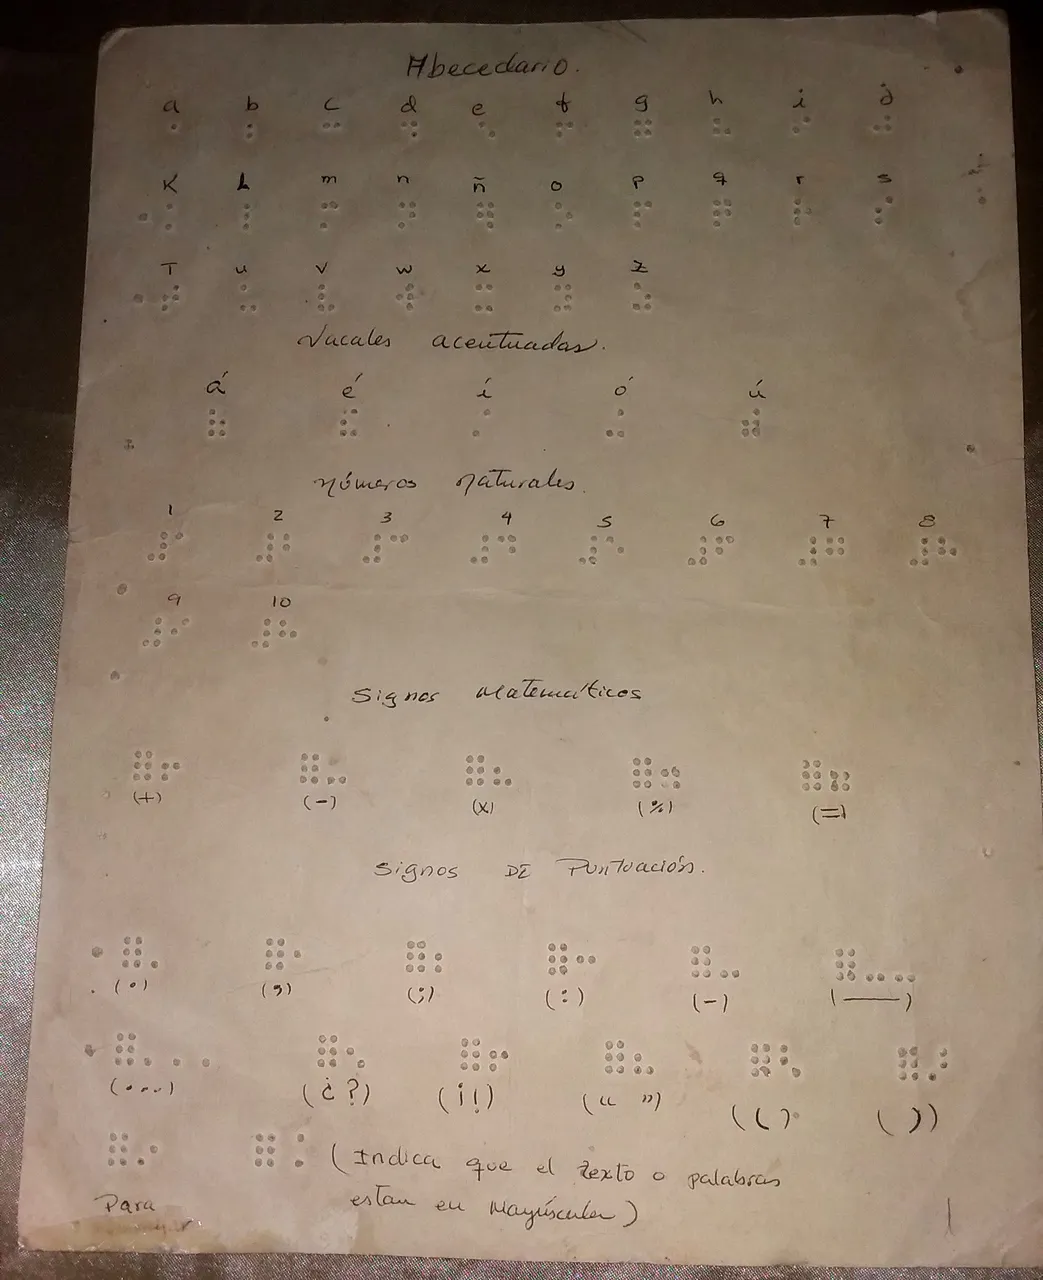 Abecedario.
a b c d e f g h i j
K L m n ñ o p q r s
T u v w x y z
Vacales acentuadas.
á é í ó ú
números naturales.
1 2 3 4 5 6 7 8
9 10
Signos Matemáticos
(+) (-) (x) (%) (=)
Signos DE Puntuación.
(.) (,) (;) (:) (-) (—)
(...) (¿?) (¡!) (“ ”) (() ())
(Indica que el texto o palabras
Para estan en Mayúsculas)